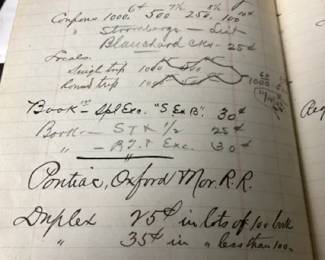 6¢ 7½ 8½ 10¢
Coupons 1000, 500 250, 100
" Stromberge — List
Blanchard Cks — 25¢
Locals.
Singl trip 10¢ 5¢
Round trip 10¢
1000
Book — Spl Exc. "S. Ex B". 30¢
Book — ST & ½ 25¢
" — R.T.P Exc. 30¢
Pontiac, Oxford Nor. R.R.
Duplex 25¢ in lots of 100 book
" 35¢ in " less than 100.